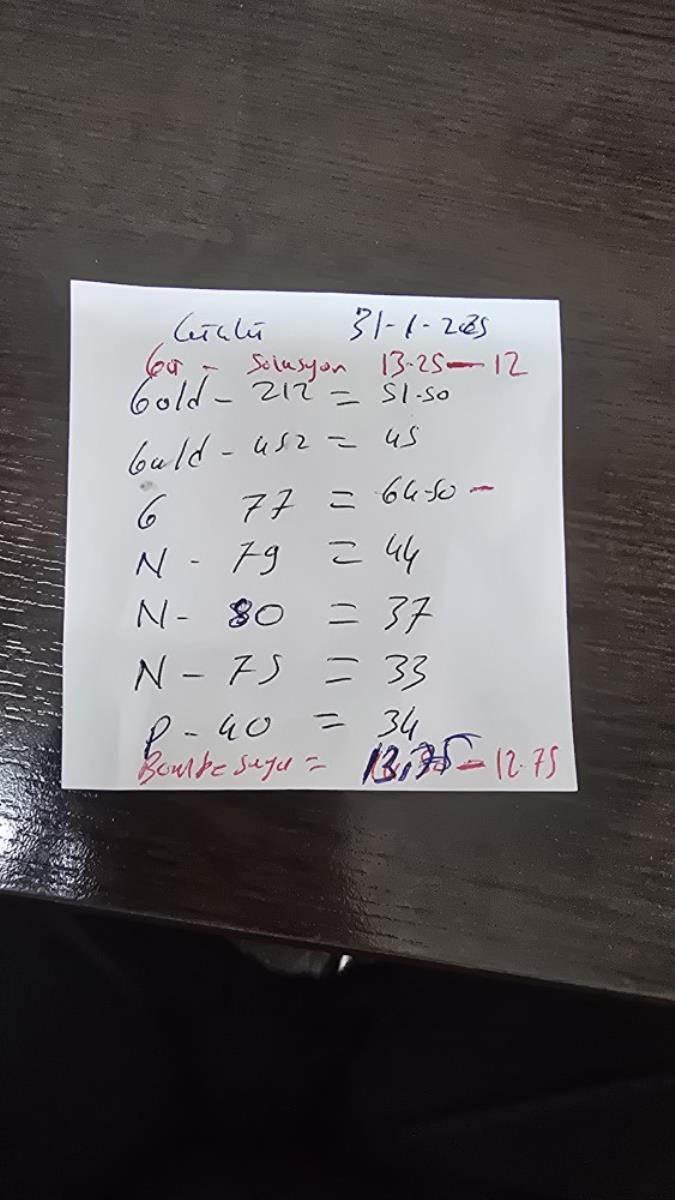 31-1-2025
Gü - Solusyon 13.25 - 12
Gold - 212 = 51.50
Gold - 452 = 45
G 77 = 64.50 -
N - 79 = 44
N - 80 = 37
N - 75 = 33
P - 40 = 34
Bombe suyu = 13,75 - 12.75